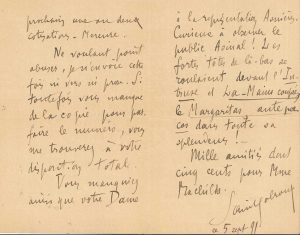 prochain une ou deux
cotisations - Merci
Ne voulant point
abuser, je n'envoie cette
fois ni vers ni prose. Si
toutefois vous manque
de la copie pour par-
faire le numéro, vous
me trouverez à votre
disposition total.
Vous manquiez
ainsi que votre Dame
à la représentation
à observer le
public Asinal ! Les
fortes têtes de là-bas se
roulaient devant l'In-
truse et
le Margaritas ante por-
cos dans toute sa
splendeur.
Mille amitiés dont
cinq cents pour Mme
Mathilde.
ce 5 sept 91.